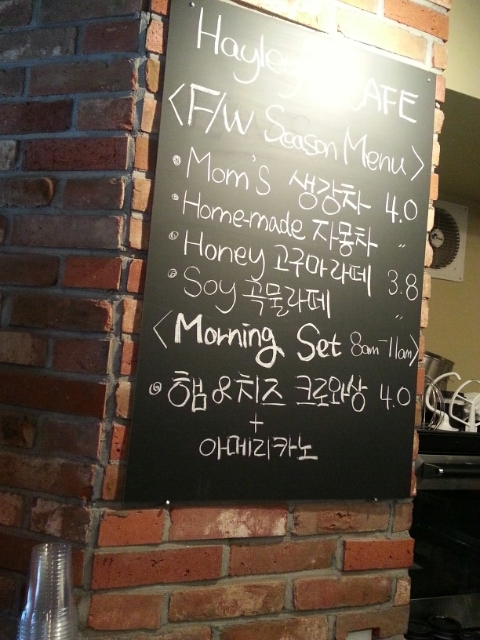 Hayley CAFE
<F/W Season Menu>
• Mom's 생강차 4.0
• Home-made 자몽차 〃
• Honey 고구마라떼 3.8
• Soy 곡물라떼 〃
<Morning Set 8am-11am>
◎ 햄&치즈 크로와상 4.0
+
아메리카노